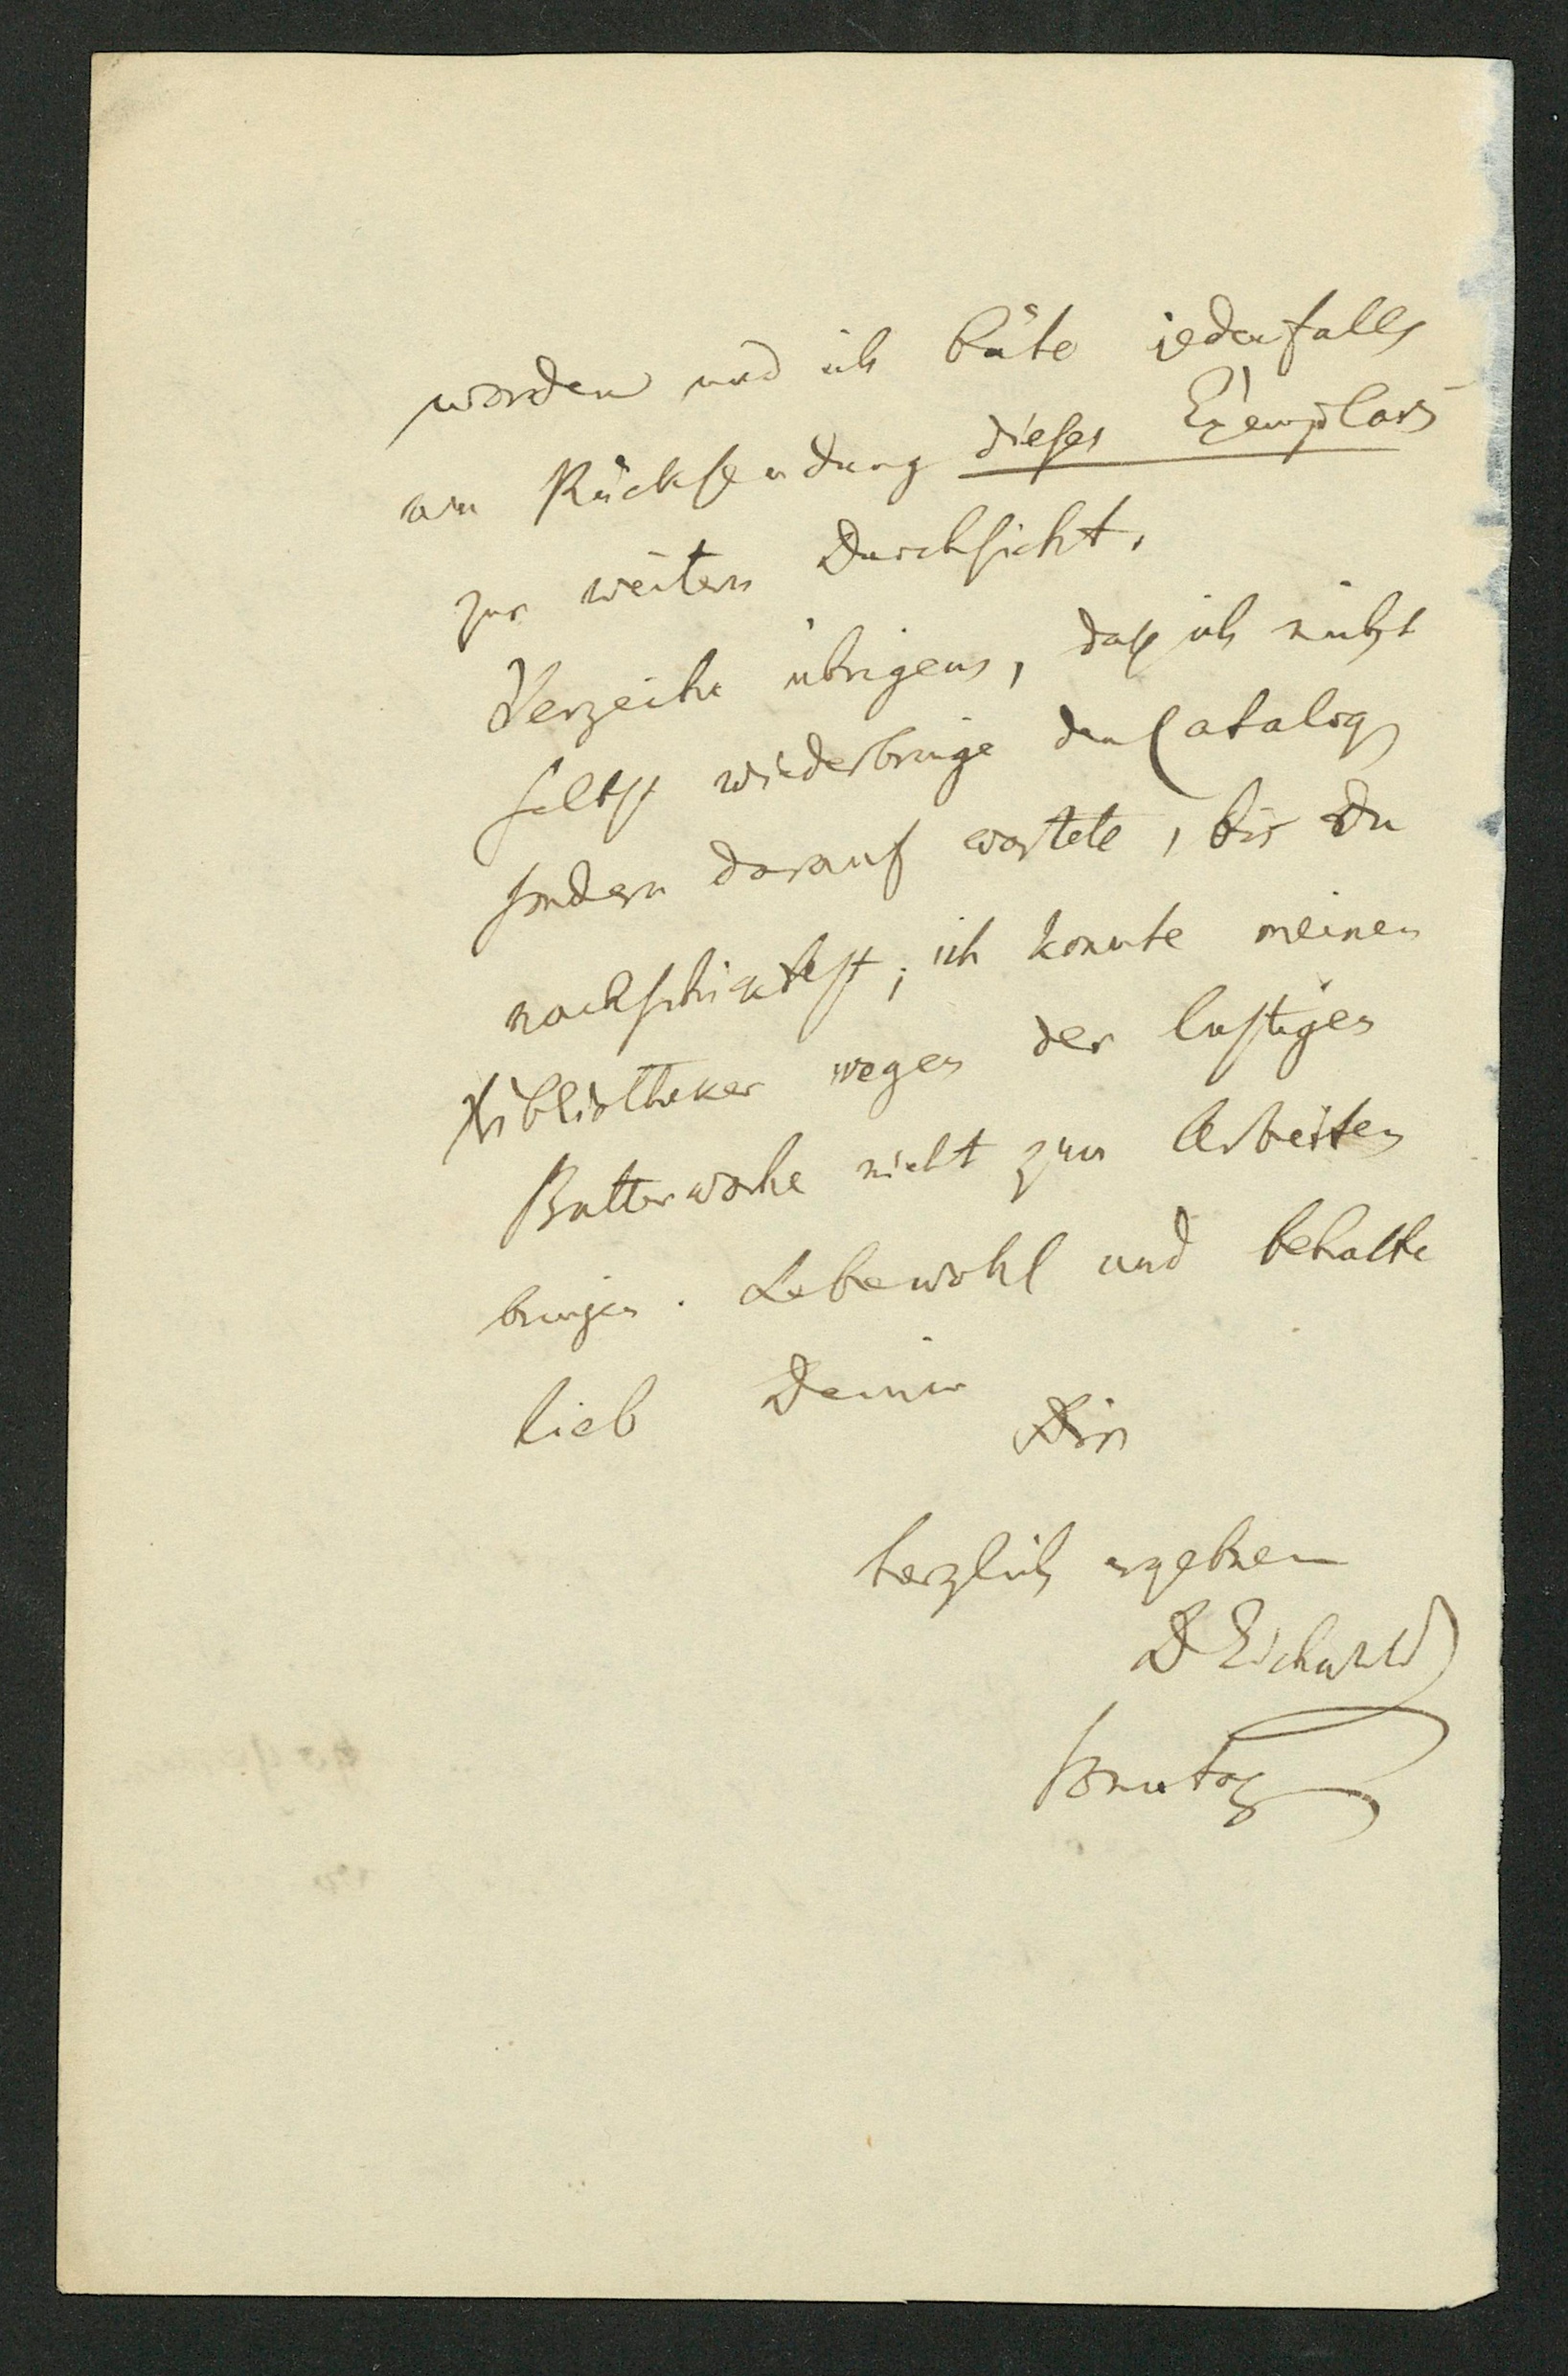 worden und ich bäte jedenfalls
um Rücksendung dieses Exemplars
zur weitern Durchsicht.
Verzeihe übrigens, daß ich nicht
selbst wiederbringe den Catalog
sondern darauf wartete, bis Du
nachschicktest; ich konnte meinen
Bibliotheker wegen der lustigen
Butterwoche nicht zum Arbeiten
bringen. Lebewohl und behalte
lieb Deinen
Dir
herzlich ergebnen
D Eichwald
Sonntag